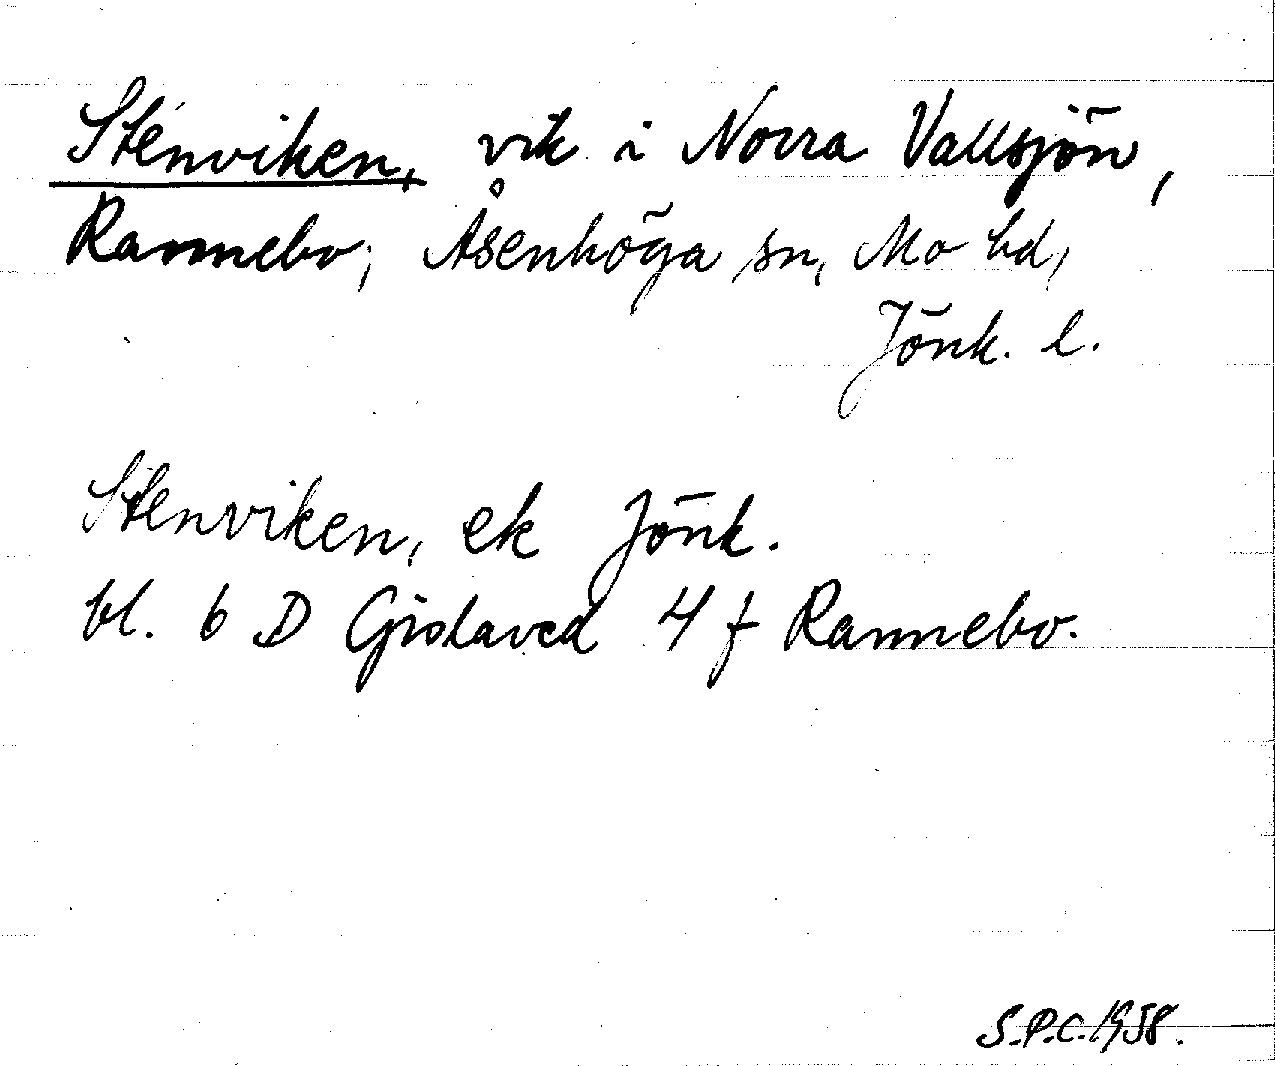 Stenviken, vik i Norra Vallsjön,
Rannebo; Åsenhöga sn, Mo hd,
Jönk. l.
Stenviken, ek Jönk.
bl. 6 D Gislaved 4 f Rannebo.
S.P.C. 1958.